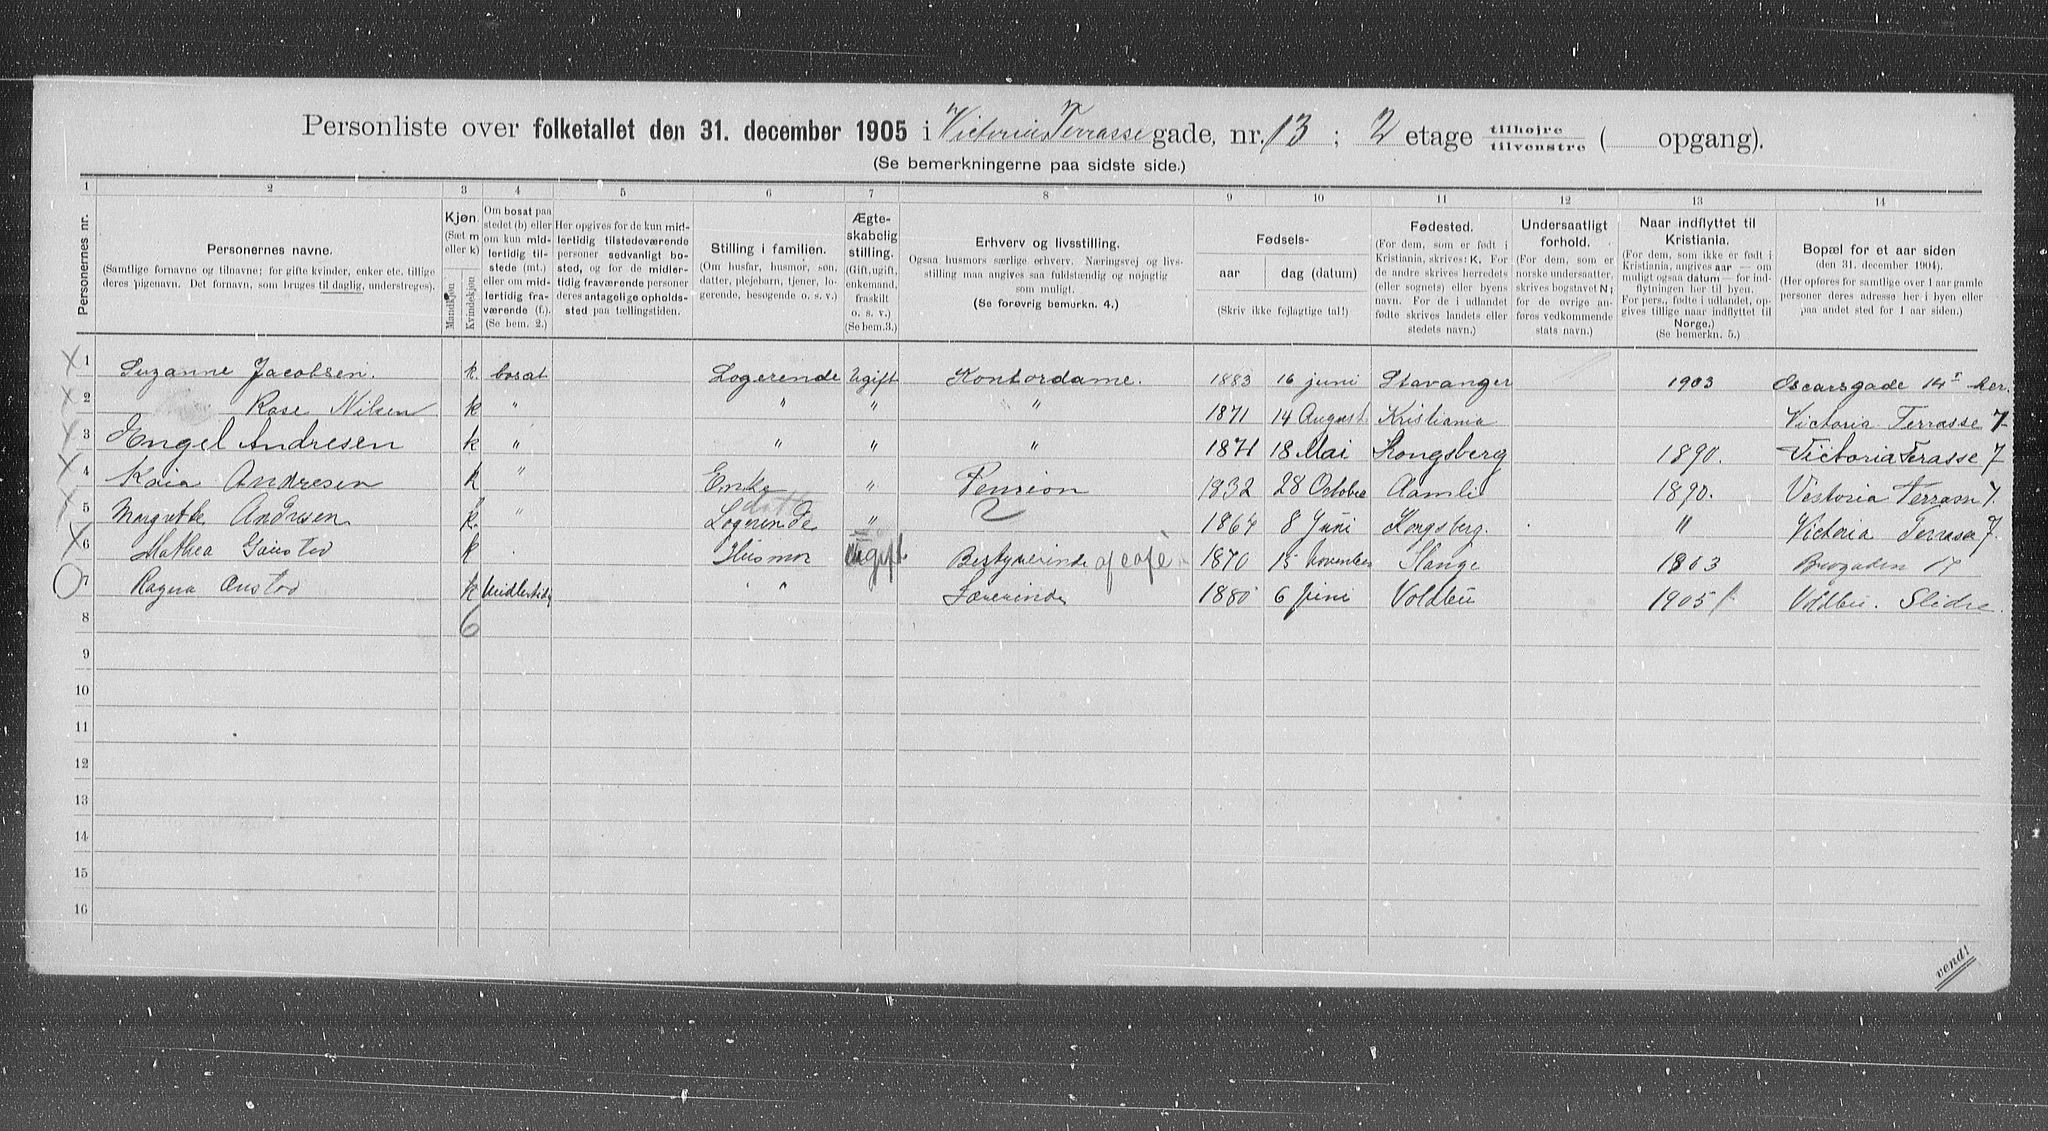 Personliste over folketallet den 31. december 1905 i Victoria Terrasse gade, nr. 13 ; 2 etage tilhøjre tilvenstre ( opgang).
(Se bemerkningerne paa sidste side.)
1 2 3 4 5 6 7 8 9 10 11 12 13 14
Personernes nr.
Personernes navne.
(Samtlige fornavne og tilnavne; for gifte kvinder, enker etc. tillige deres pigenavn. Det fornavn, som bruges til daglig, understreges).
Kjøn.
(Sæt m eller k)
Mandkjøn
Kvindekjøn
Om bosat paa stedet (b) eller om kun midlertidig tilstede (mt.) eller om midlertidig fraværende (f.). (Se bem. 2.)
Her opgives for de kun midlertidig tilstedeværende personer sedvanligt bosted, og for de midlertidig fraværende personer deres antagelige opholdssted paa tællingstiden.
Stilling i familien.
(Om husfar, husmor, søn, datter, plejebarn, tjener, logerende, besøgende o. s. v.)
Ægteskabelig stilling.
(Gift, ugift, enkemand, fraskilt o. s. v.)
(Se bem. 3.)
Erhverv og livsstilling.
Ogsaa husmors særlige erhverv. Næringsvej og livsstilling maa angives saa fuldstændig og nøjagtig som muligt.
(Se forøvrig bemerkn. 4.)
Fødsels-
aar
dag (datum)
(Skriv ikke fejlagtige tal!)
Fødested.
(For dem, som er født i Kristiania, skrives: K. For de andre skrives herredets (eller sognets) eller byens navn. For de i udlandet fødte skrives landets eller stedets navn.)
Undersaatligt forhold.
(For dem, som er norske undersaatter, skrives bogstavet N; for de øvrige anføres vedkommende stats navn.)
Naar indflyttet til Kristiania.
(For dem, som ikke er født i Kristiania, angives aar — om muligt ogsaa datum — for indflytningen her til byen. For pers., fødte i udlandet, opgives tillige naar indflyttet til Norge.)
(Se bemerkn. 5.)
Bopæl for et aar siden
(den 31. december 1904).
(Her opføres for samtlige over 1 aar gamle personer deres adresse her i byen eller paa andet sted for 1 aar siden.)
1 Suzanne Jacobsen. k. bosat Logerende Ugift Kontordame. 1883 16 juni Stavanger 1903 Oscarsgade 14 I her.
2 Rose Nilsen k " " " " 1871 14 August Kristiania Victoria Terrasse 7
3 Engel Andresen k " " " " 1871 18 Mai Kongsberg 1890. Victoria Terasse 7
4 Kaia Andresen k " Enke " Pension 1832 28 October Aamli 1890. Victoria Terrasse 7.
5 Margrethe Andresen k. " Logerende " 1864 8 Juni Kongsberg. " Victoria Terrasse 7.
6 Mathea Gaustad k Husmor Ugift Bestyrerinde af cafe 1870 15 november Slange 1863 Brogaden 17
7 Ragna k Midlertidig " " Lærerinde 1880 6 Juni Voldbu 1905 Voldbu. Slidre.
8 6
9
10
11
12
13
14
15
16
vend!